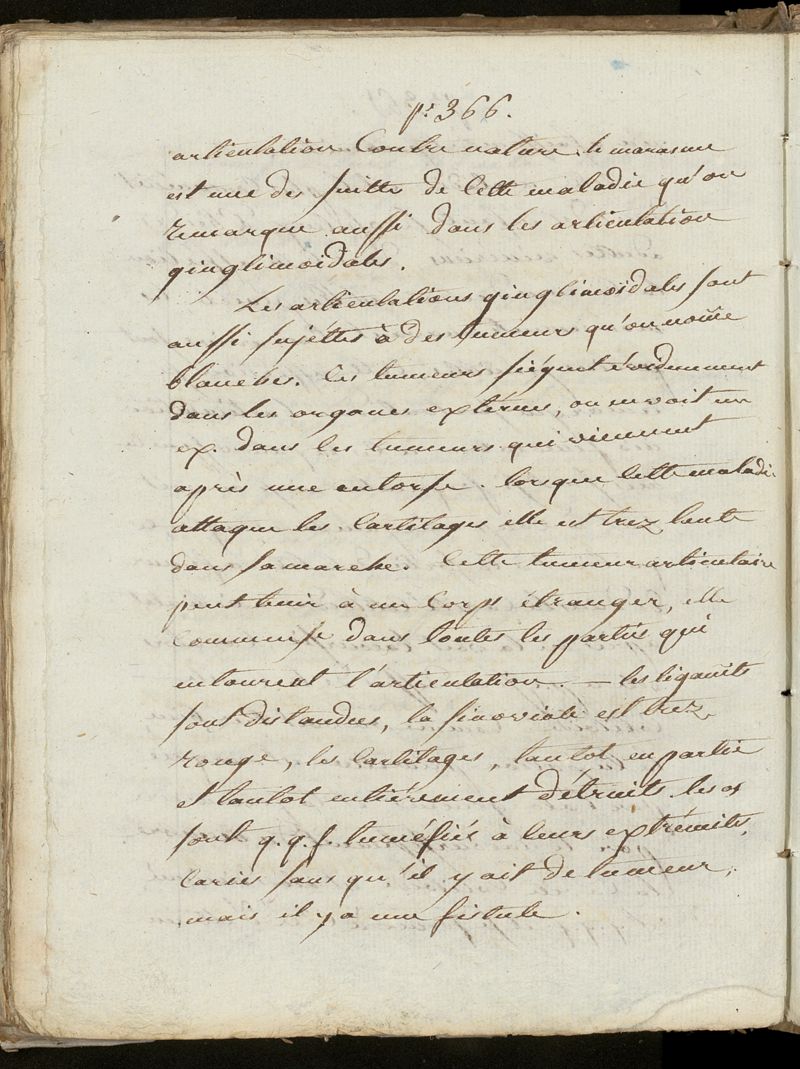 p.r 366.
articulation Contre nature. le marasme
est une des suitte de Cette maladie qu'on
remarque aussi dans les articulation
ginglimoidales.
Les articulations ginglimoidales sont
aussi sujéttes à des tumeurs qu'on nom̃e
blanches. Ces tumeurs siégent évidemment
dans les organes extérnes, on en voit un
ex. dans les tumeurs qui viennent
après une entorse. lorsque Cette maladie
attaque les Cartilages elle est trez lente
dans sa marche. Cette tumeur articulaire
peut tenir à un Corps étranger, elle
Commense dans toutes les parties qui
entourent l'articulation. — les ligam̃ts
sont distandues, la sinoviale est trez
rouge, les Cartilages, tantot en partie
et tantot entiérement détruits. les os
sont q.q.f. tuméfiés à leurs extrémités,
Cariés sans qu'il y ait de tumeur,
mais il y a une fistule.